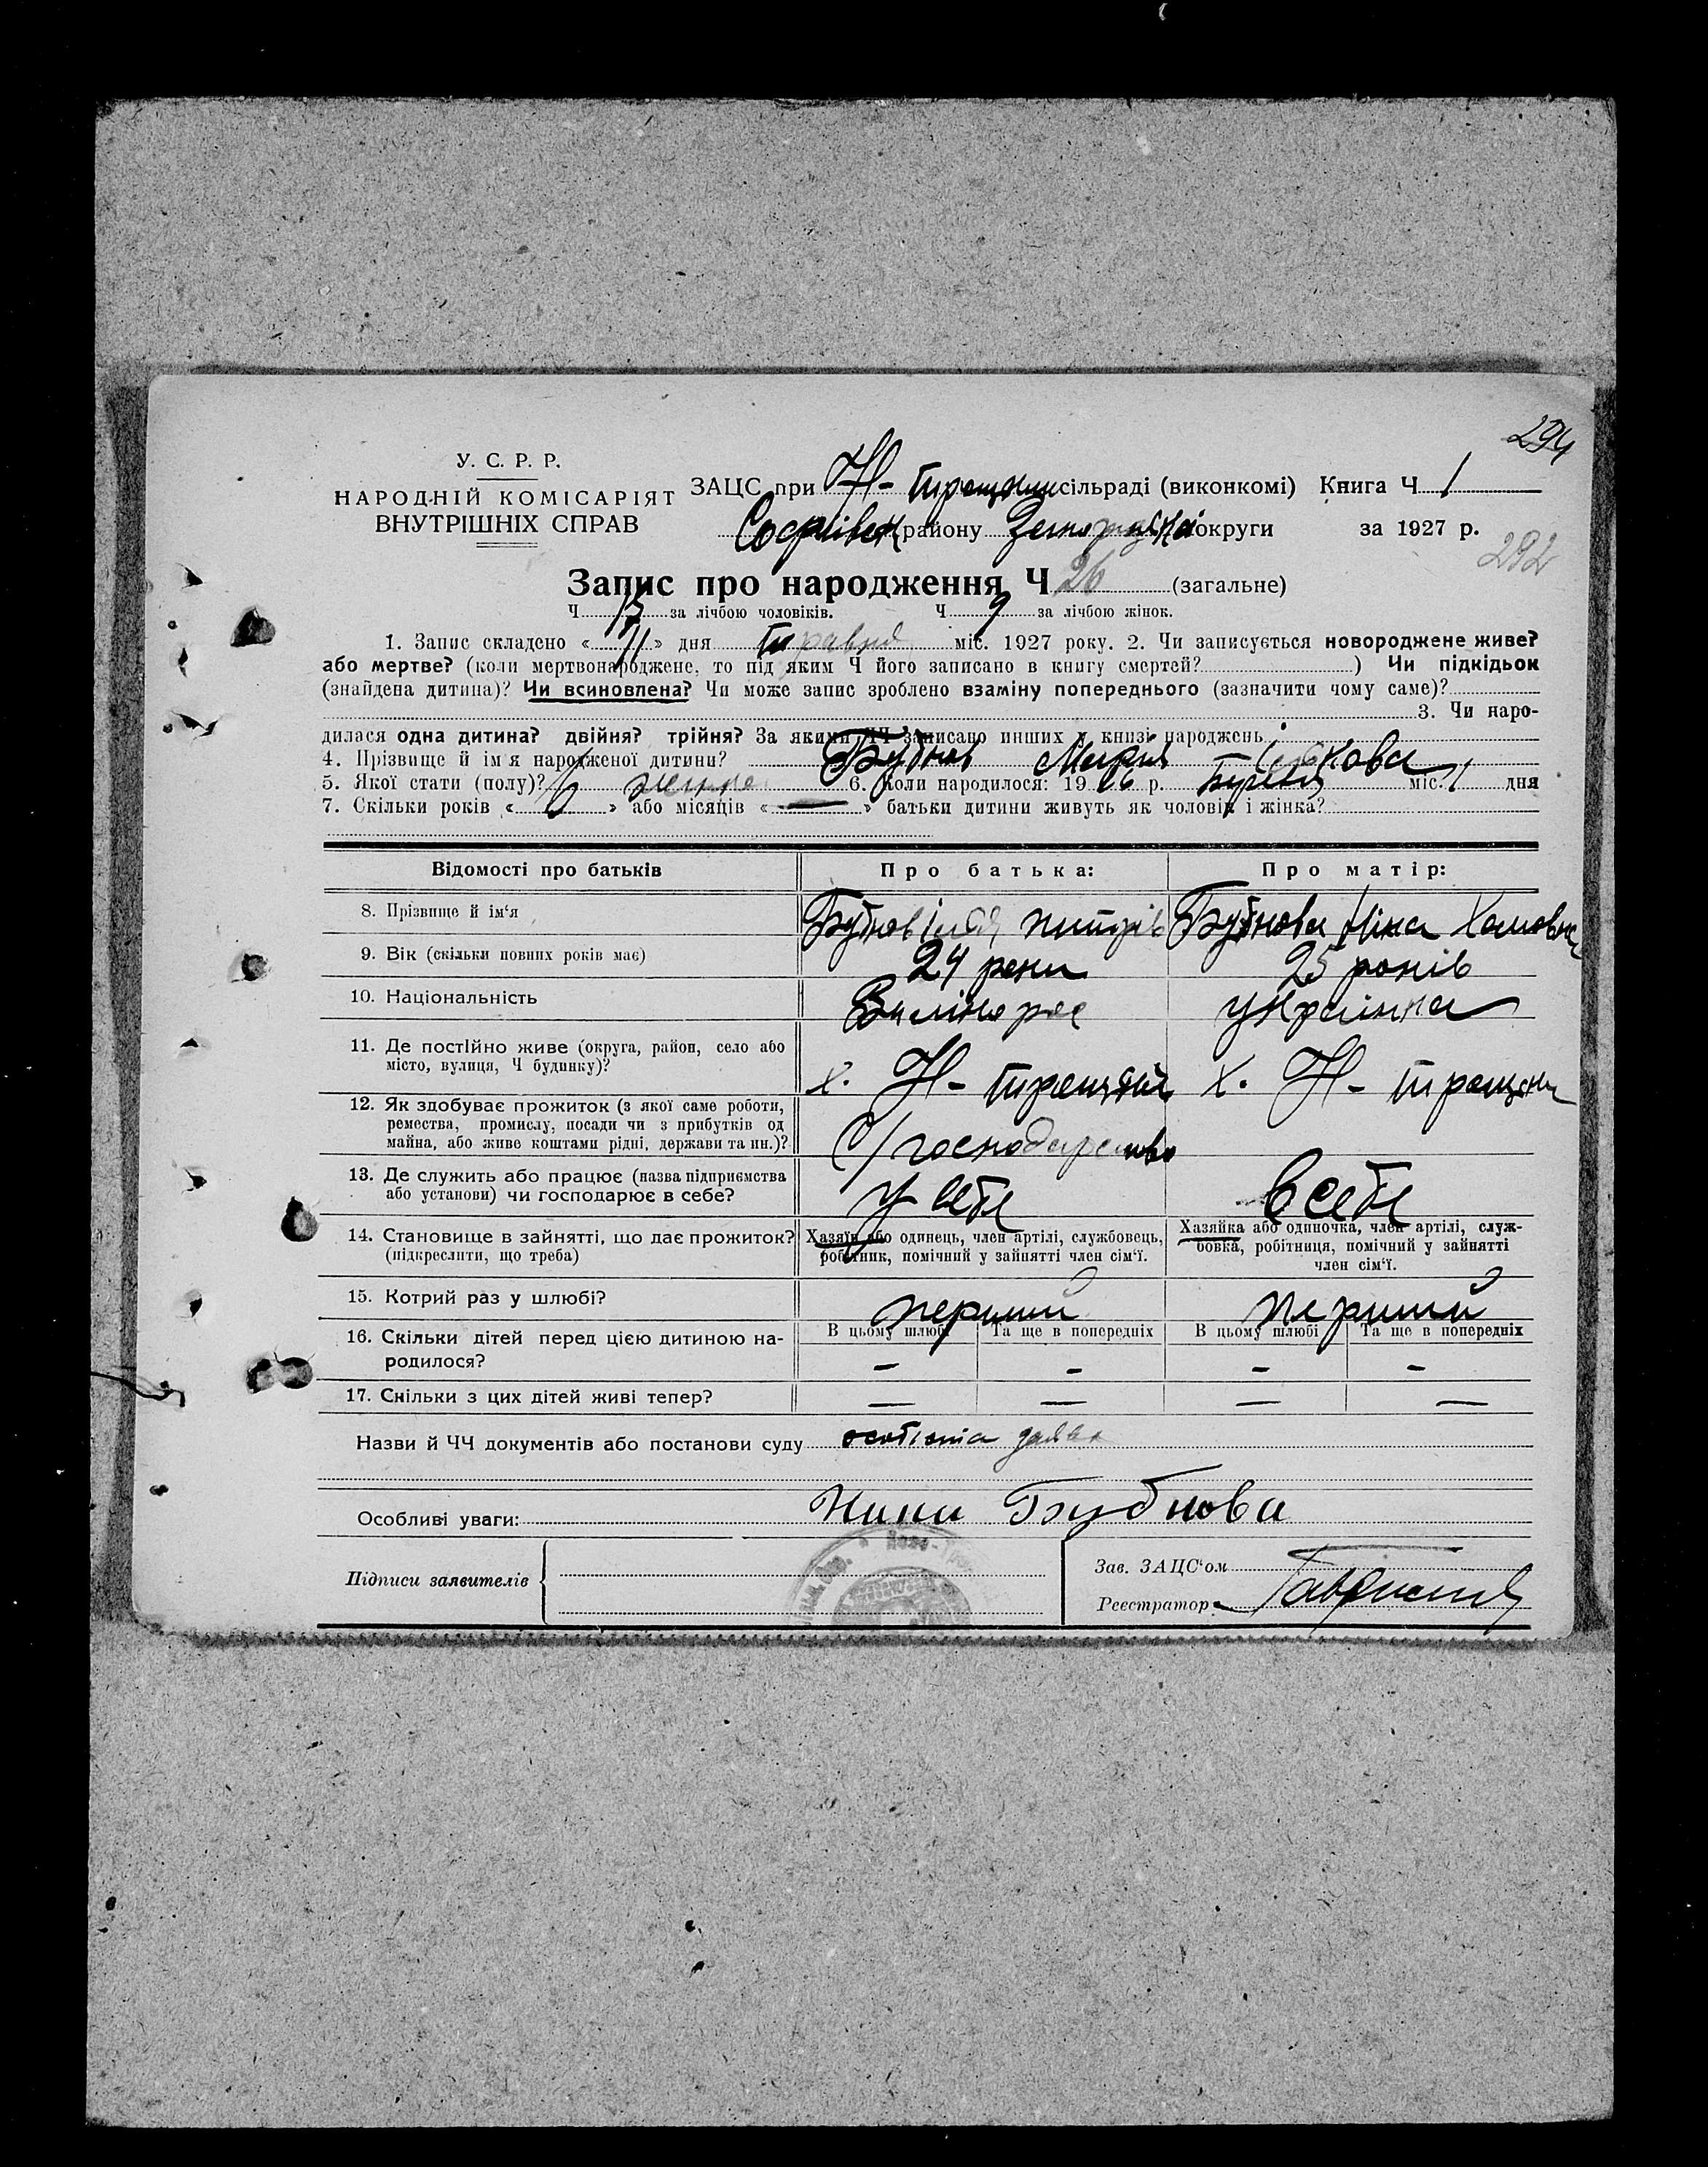 294
У. С. Р. Р.
НАРОДНІЙ КОМІСАРІЯТ
ВНУТРІШНІХ СПРАВ
ЗАЦС при Н- сільраді (виконкомі) Книга Ч 1
Софіївськ району округи за 1927 р.
292
Запис про народження Ч 26 (загальне)
Ч за лічбою чоловіків. Ч 9 за лічбою жінок.
1. Запис складено «11» дня травня міс. 1927 року. 2. Чи записується новороджене живе?
або мертве? (коли мертвонароджене, то під яким Ч його записано в книгу смертей? ) Чи підкідьок
(знайдена дитина)? Чи всиновлена? Чи може запис зроблено взаміну попереднього (зазначити чому саме)?
3. Чи наро-
дилася одна дитина? двійня? трійня? За якими ЧЧ записано инших у книзі народжень
4. Прізвище й ім'я народженої дитини? Бубнов Марія
5. Якої стати (полу)? 6. Коли народилося: 1926 р. міс. 1 дня
7. Скільки років « » або місяців «—» батьки дитини живуть як чоловік і жінка?
Відомості про батьків Про батька: Про матір:
8. Прізвище й ім'я Бубнов Бубнова Ніна Хомовна
9. Вік (скільки повних років має) 24 роки 25 років
10. Національність Велікорос українка
11. Де постійно живе (округа, район, село або
місто, вулиця, Ч будинку)? х. Н- х. Н-
12. Як здобуває прожиток (з якої саме роботи,
ремества, промислу, посади чи з прибутків од
майна, або живе коштами рідні, держави та ин.)? С/господарство
13. Де служить або працює (назва підприємства
або установи) чи господарює в себе? у себе в себе
14. Становище в зайнятті, що дає прожиток?
(підкреслити, що треба)
Хазяїн або одинець, член артілі, службовець,
робітник, помічний у зайнятті член сім'ї.
Хазяйка або одиночка, член артілі, служ-
бовка, робітниця, помічний у зайнятті
член сім'ї.
15. Котрий раз у шлюбі? перший перший
16. Скільки дітей перед цією дитиною на-
родилося?
В цьому шлюбі Та ще в попередніх В цьому шлюбі Та ще в попередніх
– – – –
17. Скільки з цих дітей живі тепер? — — — —
Назви й ЧЧ документів або постанови суду особиста заява
Особливі уваги: Нина Бубнова
Підписи заявителів
Зав. ЗАЦС'ом
Реєстратор